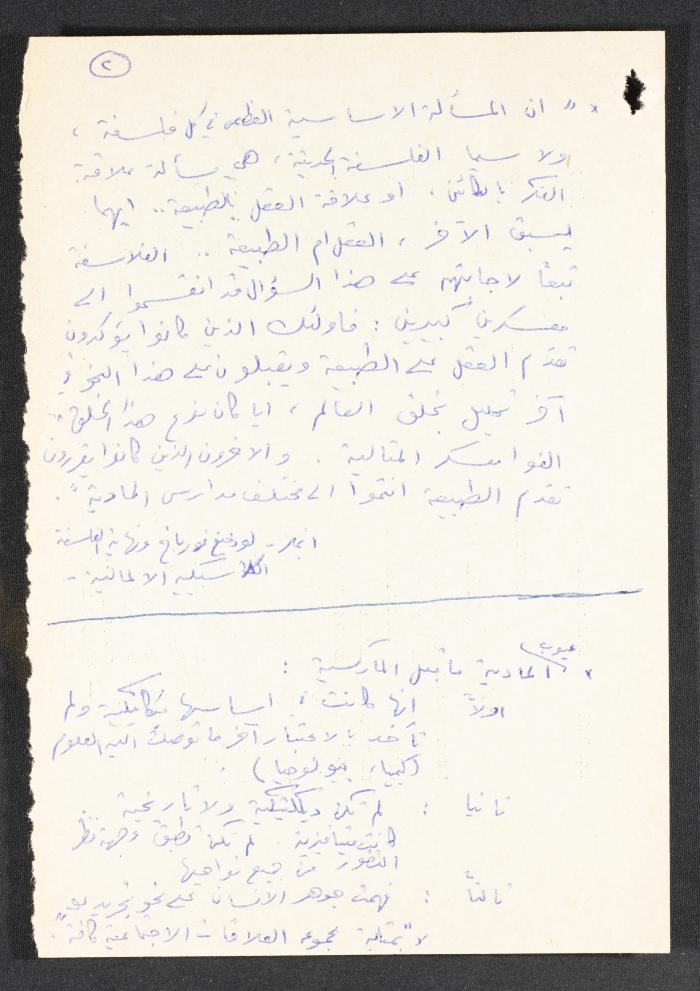 ٢
* " ان المسألة الاساسية العظمى في كل فلسفة ،
ولا سيما الفلسفة الحديثة ، هي مسألة علاقة
الفكر بالكائن ، او علاقة العقل بالطبيعة .. ايهما
يسبق الآخر ، العقل ام الطبيعة .. الفلاسفة
تبعاً لاجابتهم على هذا السؤال قد انقسموا الى
معسكرين كبيرين : فاولئك الذين كانوا يؤكدون
تقدم العقل على الطبيعة ويقبلون على هذا النحو في
آخر تحليل بخلق العالم ، ايا كان نوع هذا الخلق ،
الفوا معسكر المثالية . والآخرون الذين كانوا يقررون
تقدم الطبيعة انتموا الى مختلف مدارس المادية " .
انجلز - لودفيغ فورباخ ونهاية الفلسفة
الكلاسيكية الالمانية -
عيوب
* المادية ما قبل الماركسية :
اولاً انها كانت في اساسها ميكانيكية ولم
تأخذ بالاعتبار آخر ما توصلت اليه العلوم
( كيمياء ، بيولوجيا ) .
ثانيا : لم تكن ديالكتيكية ولا تاريخية
كانت ميتافيزية . لم تكن تطبق وجهة نظر
التطور من جميع نواحيها
ثالثاً : فهمت جوهر الانسان على نحو تجريدي
لا " بمثابة مجموعة العلاقات الاجتماعية كافة " .